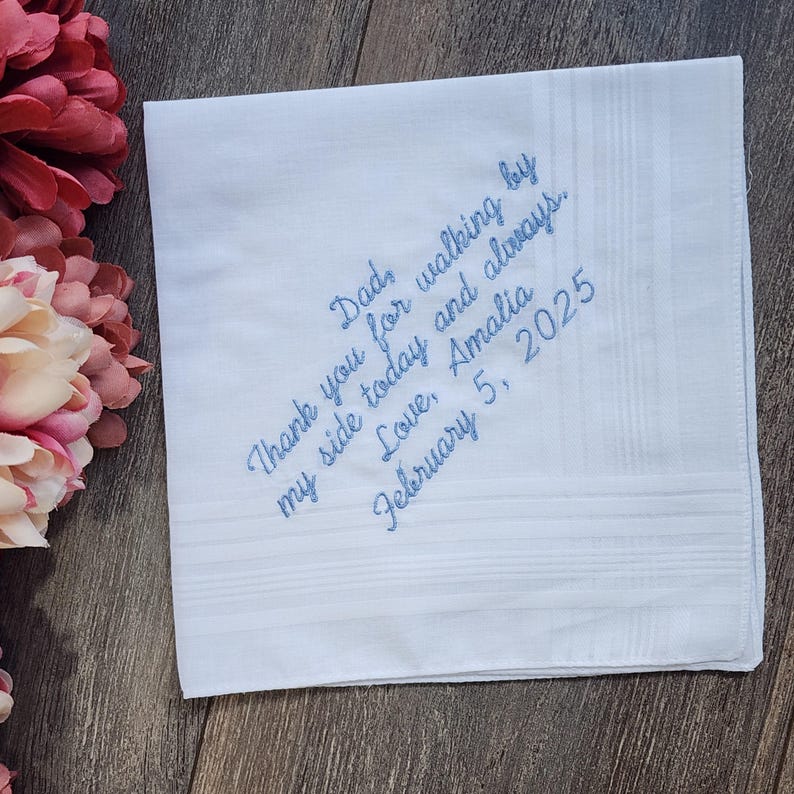 Dad,
Thank you for walking by
my side today and always.
Love, Amalia
February 5, 2025